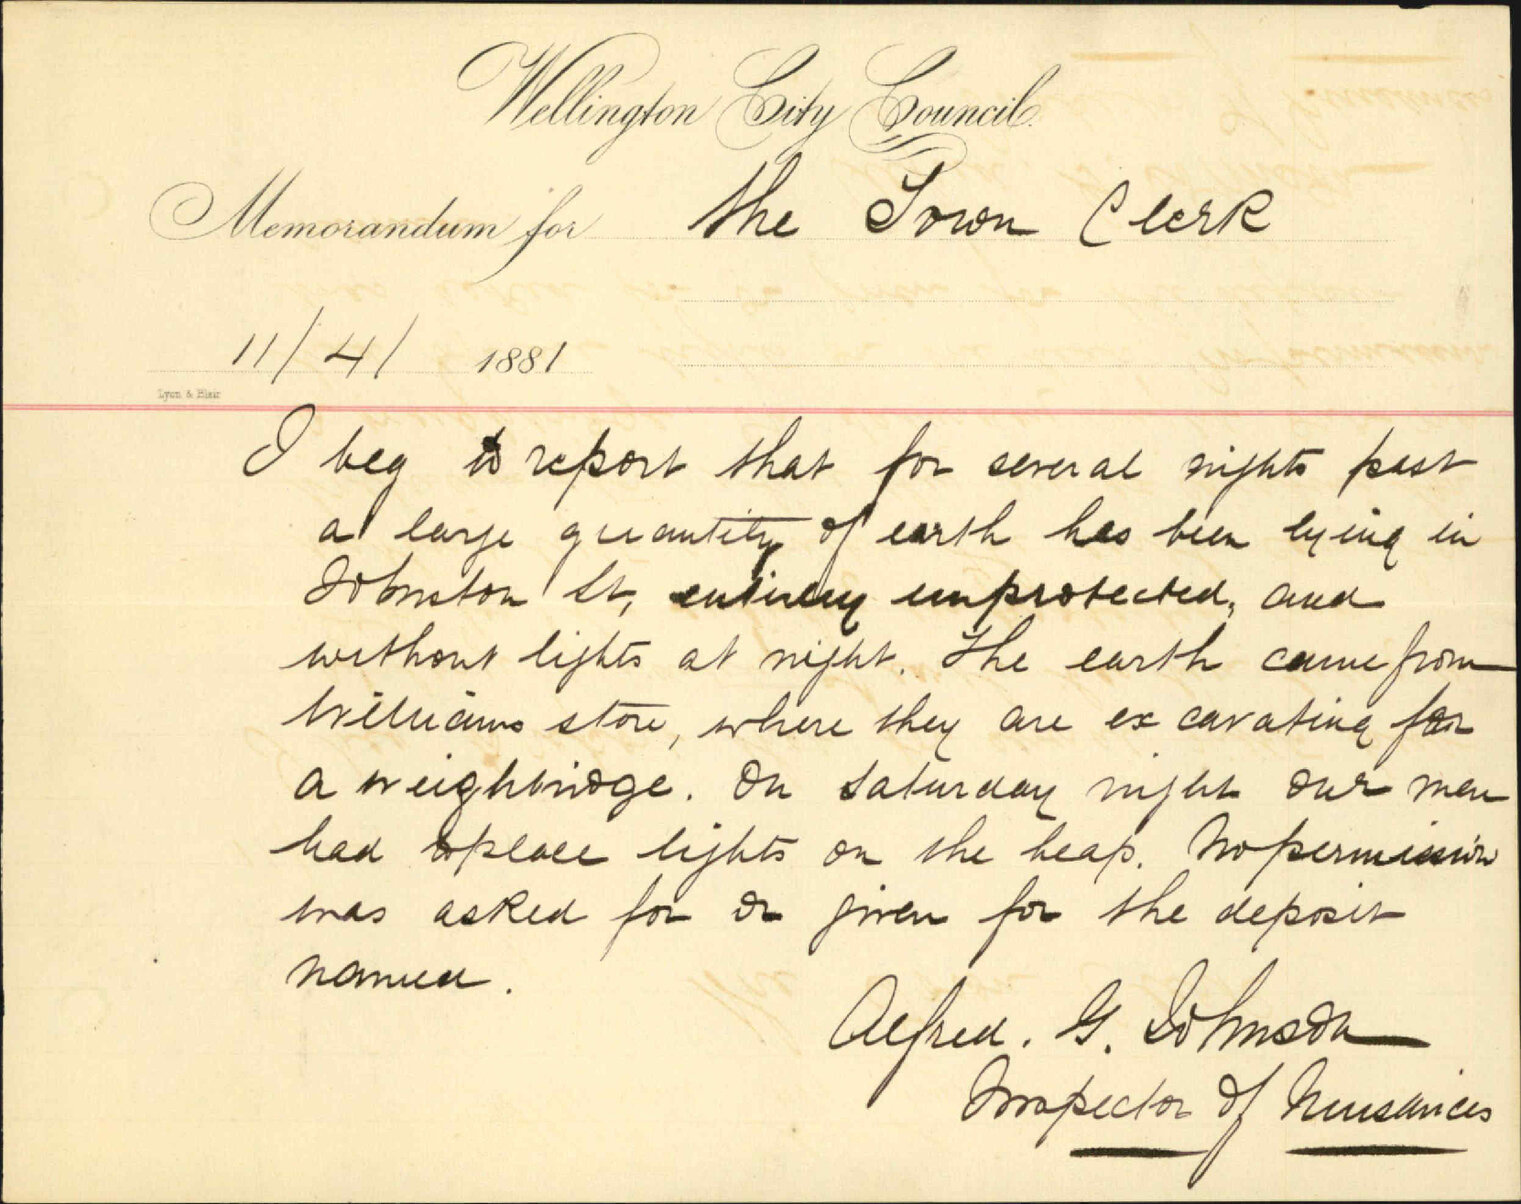 Wellington City Council.
Memorandum for the Town Clerk
11/4/ 1881
Lyon & Blair
I beg to report that for several nights past
a large quantity of earth has been lying in
Johnston St, entirely unprotected, and
without lights at night. The earth came from
Williams store, where they are excavating for
a weighbridge. On Saturday night our men
had to place lights on the heap. No permission
was asked for or given for the deposit
named.
Alfred. G. Johnson
Inspector of Nuisances